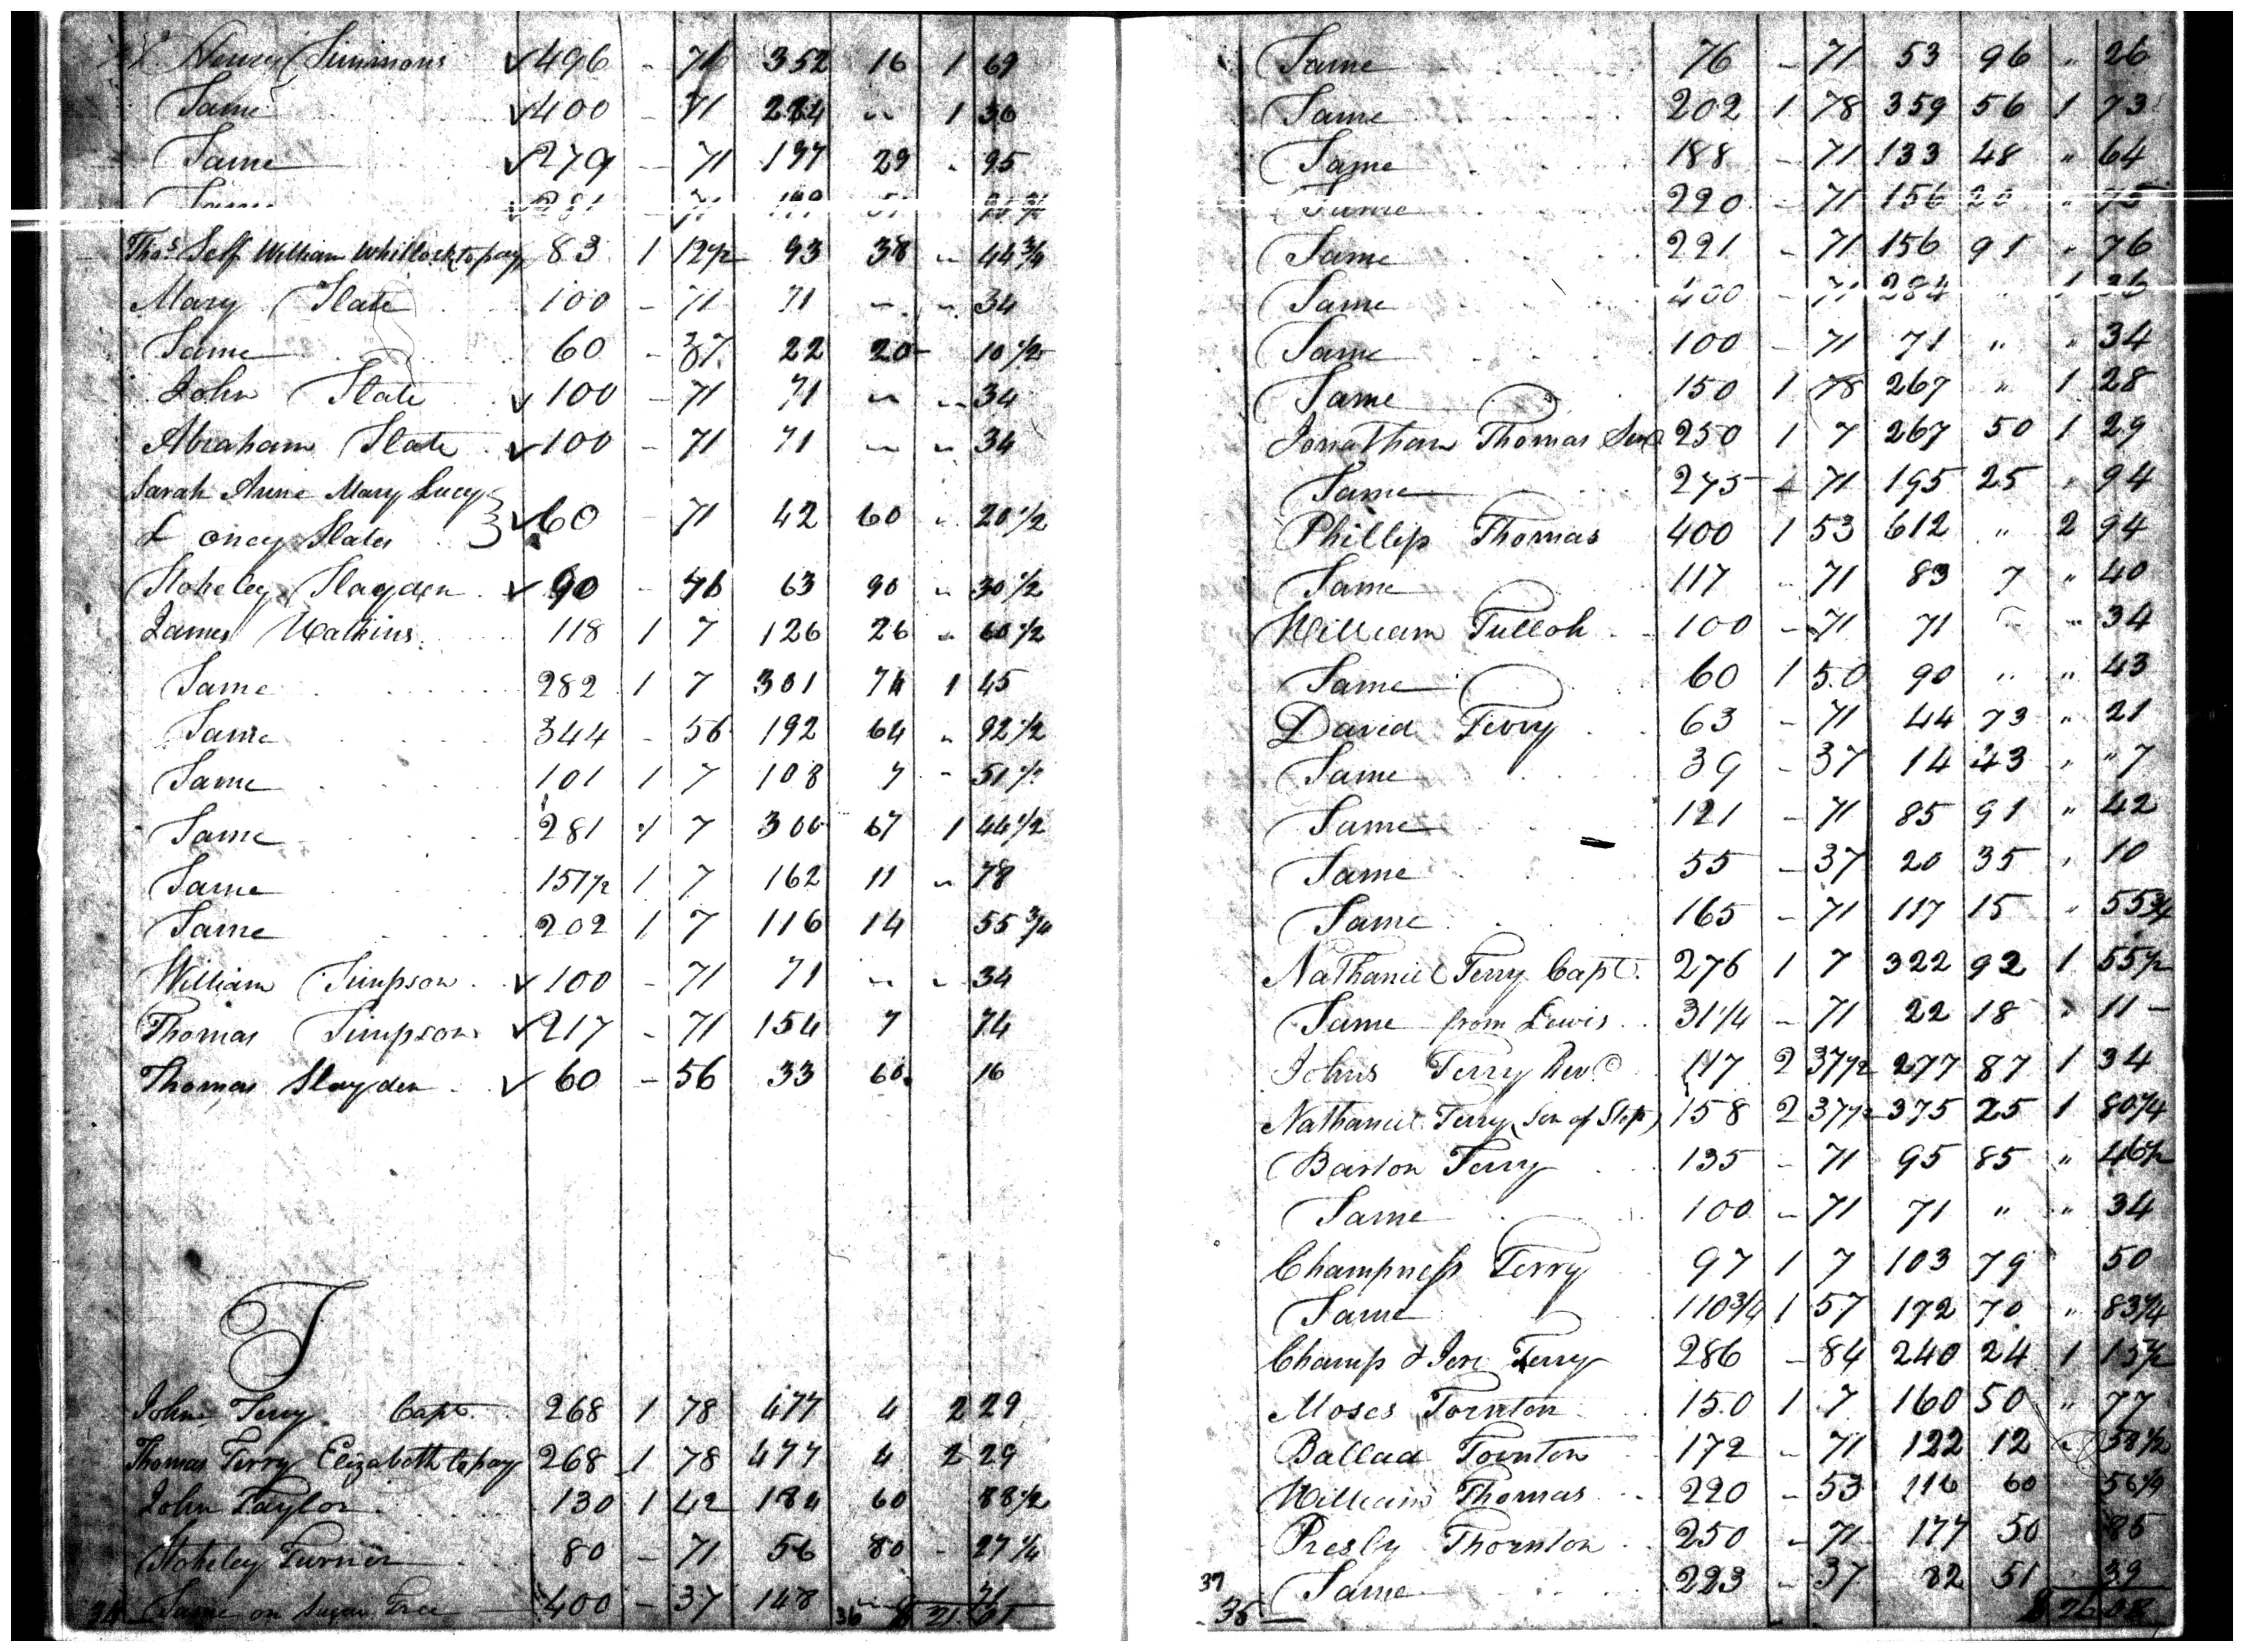 Henry Simmons 496 - 71 352 16 1 69
Same 400 - 71 284 " 1 36
Same 279 - 71 197 29 - 95
Same 281 - 71 199 51
Thos Self William Whitlock to pay 83 1 12 1/2 93 38 " 44 3/4
Mary Slate 100 - 71 71 " " 34
Same 60 - 37 22 20 10 1/2
John Slate 100 - 71 71 " " 34
Abraham Slate 100 - 71 71 " " 34
Sarah Anne Mary Lucy
& oney Slates 60 - 71 42 60 " 20 1/2
Stokeley Slayden 90 - 71 63 90 " 30 1/2
James Watkins 118 1 7 126 26 " 60 1/2
Same 282 1 7 301 74 1 45
Same 344 - 56 192 64 " 92 1/2
Same 101 1 7 108 7 - 51 1/2
Same 281 1 7 300 67 1 44 1/2
Same 151 1/2 1 7 162 11 " 78
Same 202 1 7 116 14 55 3/4
William Simpson 100 - 71 71 " " 34
Thomas Simpson 217 - 71 154 7 74
Thomas Slayden 60 - 56 33 60 16
T
John Terry Capt. 268 1 78 477 4 2 29
Thomas Terry Elizabeth to pay 268 1 78 477 4 2 29
John Taylor 130 1 42 184 60 88 1/2
Stokeley Turner 80 - 71 56 80 - 27 1/4
Same on Sugar Tree 400 - 37 148 " 71
36
Same 76 - 71 53 96 " 26
Same 202 1 78 359 56 1 73
Same 188 - 71 133 48 " 64
Same 220 - 71 156 20 " 75
Same 221 - 71 156 91 " 76
Same 400 - 71 284 " 1 36
Same 100 - 71 71 " " 34
Same 150 1 78 267 " 1 28
Jonathan Thomas Senr 250 1 7 267 50 1 29
Same 275 - 71 195 25 " 94
Phillip Thomas 400 1 53 612 " 2 94
Same 117 - 71 83 7 " 40
William Tulloh 100 - 71 71 " " 34
Same 60 1 50 90 " " 43
David Terry 63 - 71 44 73 " 21
Same 39 - 37 14 43 " " 7
Same 121 - 71 85 91 " 42
Same 55 - 37 20 35 " 10
Same 165 - 71 117 15 " 55 3/4
Nathaniel Terry Capt. 276 1 7 322 92 1 55 1/2
Same from Lewis 31 1/4 - 71 22 18 " 11 -
Johns Terry Revd 117 2 37 1/2 277 87 1 34
Nathaniel Terry (Son of Stepn) 158 2 37 1/2 375 25 1 80 1/4
Barton Terry 135 - 71 95 85 " 46 1/2
Same 100 - 71 71 " " 34
Champness Terry 97 1 7 103 79 50
Same 110 3/4 1 57 172 70 " 83 1/4
Champ & Jere Terry 286 - 84 240 24 1 15 1/2
Moses Tornton 150 1 7 160 50 " 77
Ballad Tornton 172 - 71 122 12 " 58 1/2
William Thomas 220 - 53 116 60 56 1/4
Presly Thornton 250 - 71 177 50 85
37 Same 223 - 37 82 51 39
35 $ 26 08